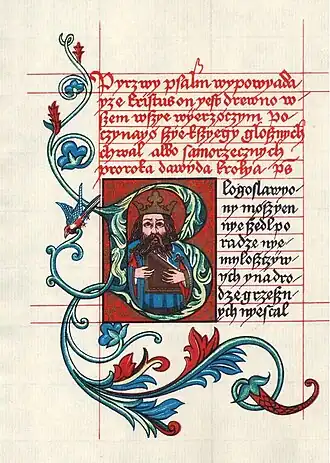 Pyrzwy psalm wypowyada
yze kristus on yest drewno w
szem wszye wyerzøczym Po
czynayø szye kszyegy glosnych
chwal albo samorzecznych
proroka dawyda krolya ps
Blogoslawyo
ny møsz yen
nye szedl po
radze nye
mylosczyw
ych y na dro
dze grzesz
nych nye stal